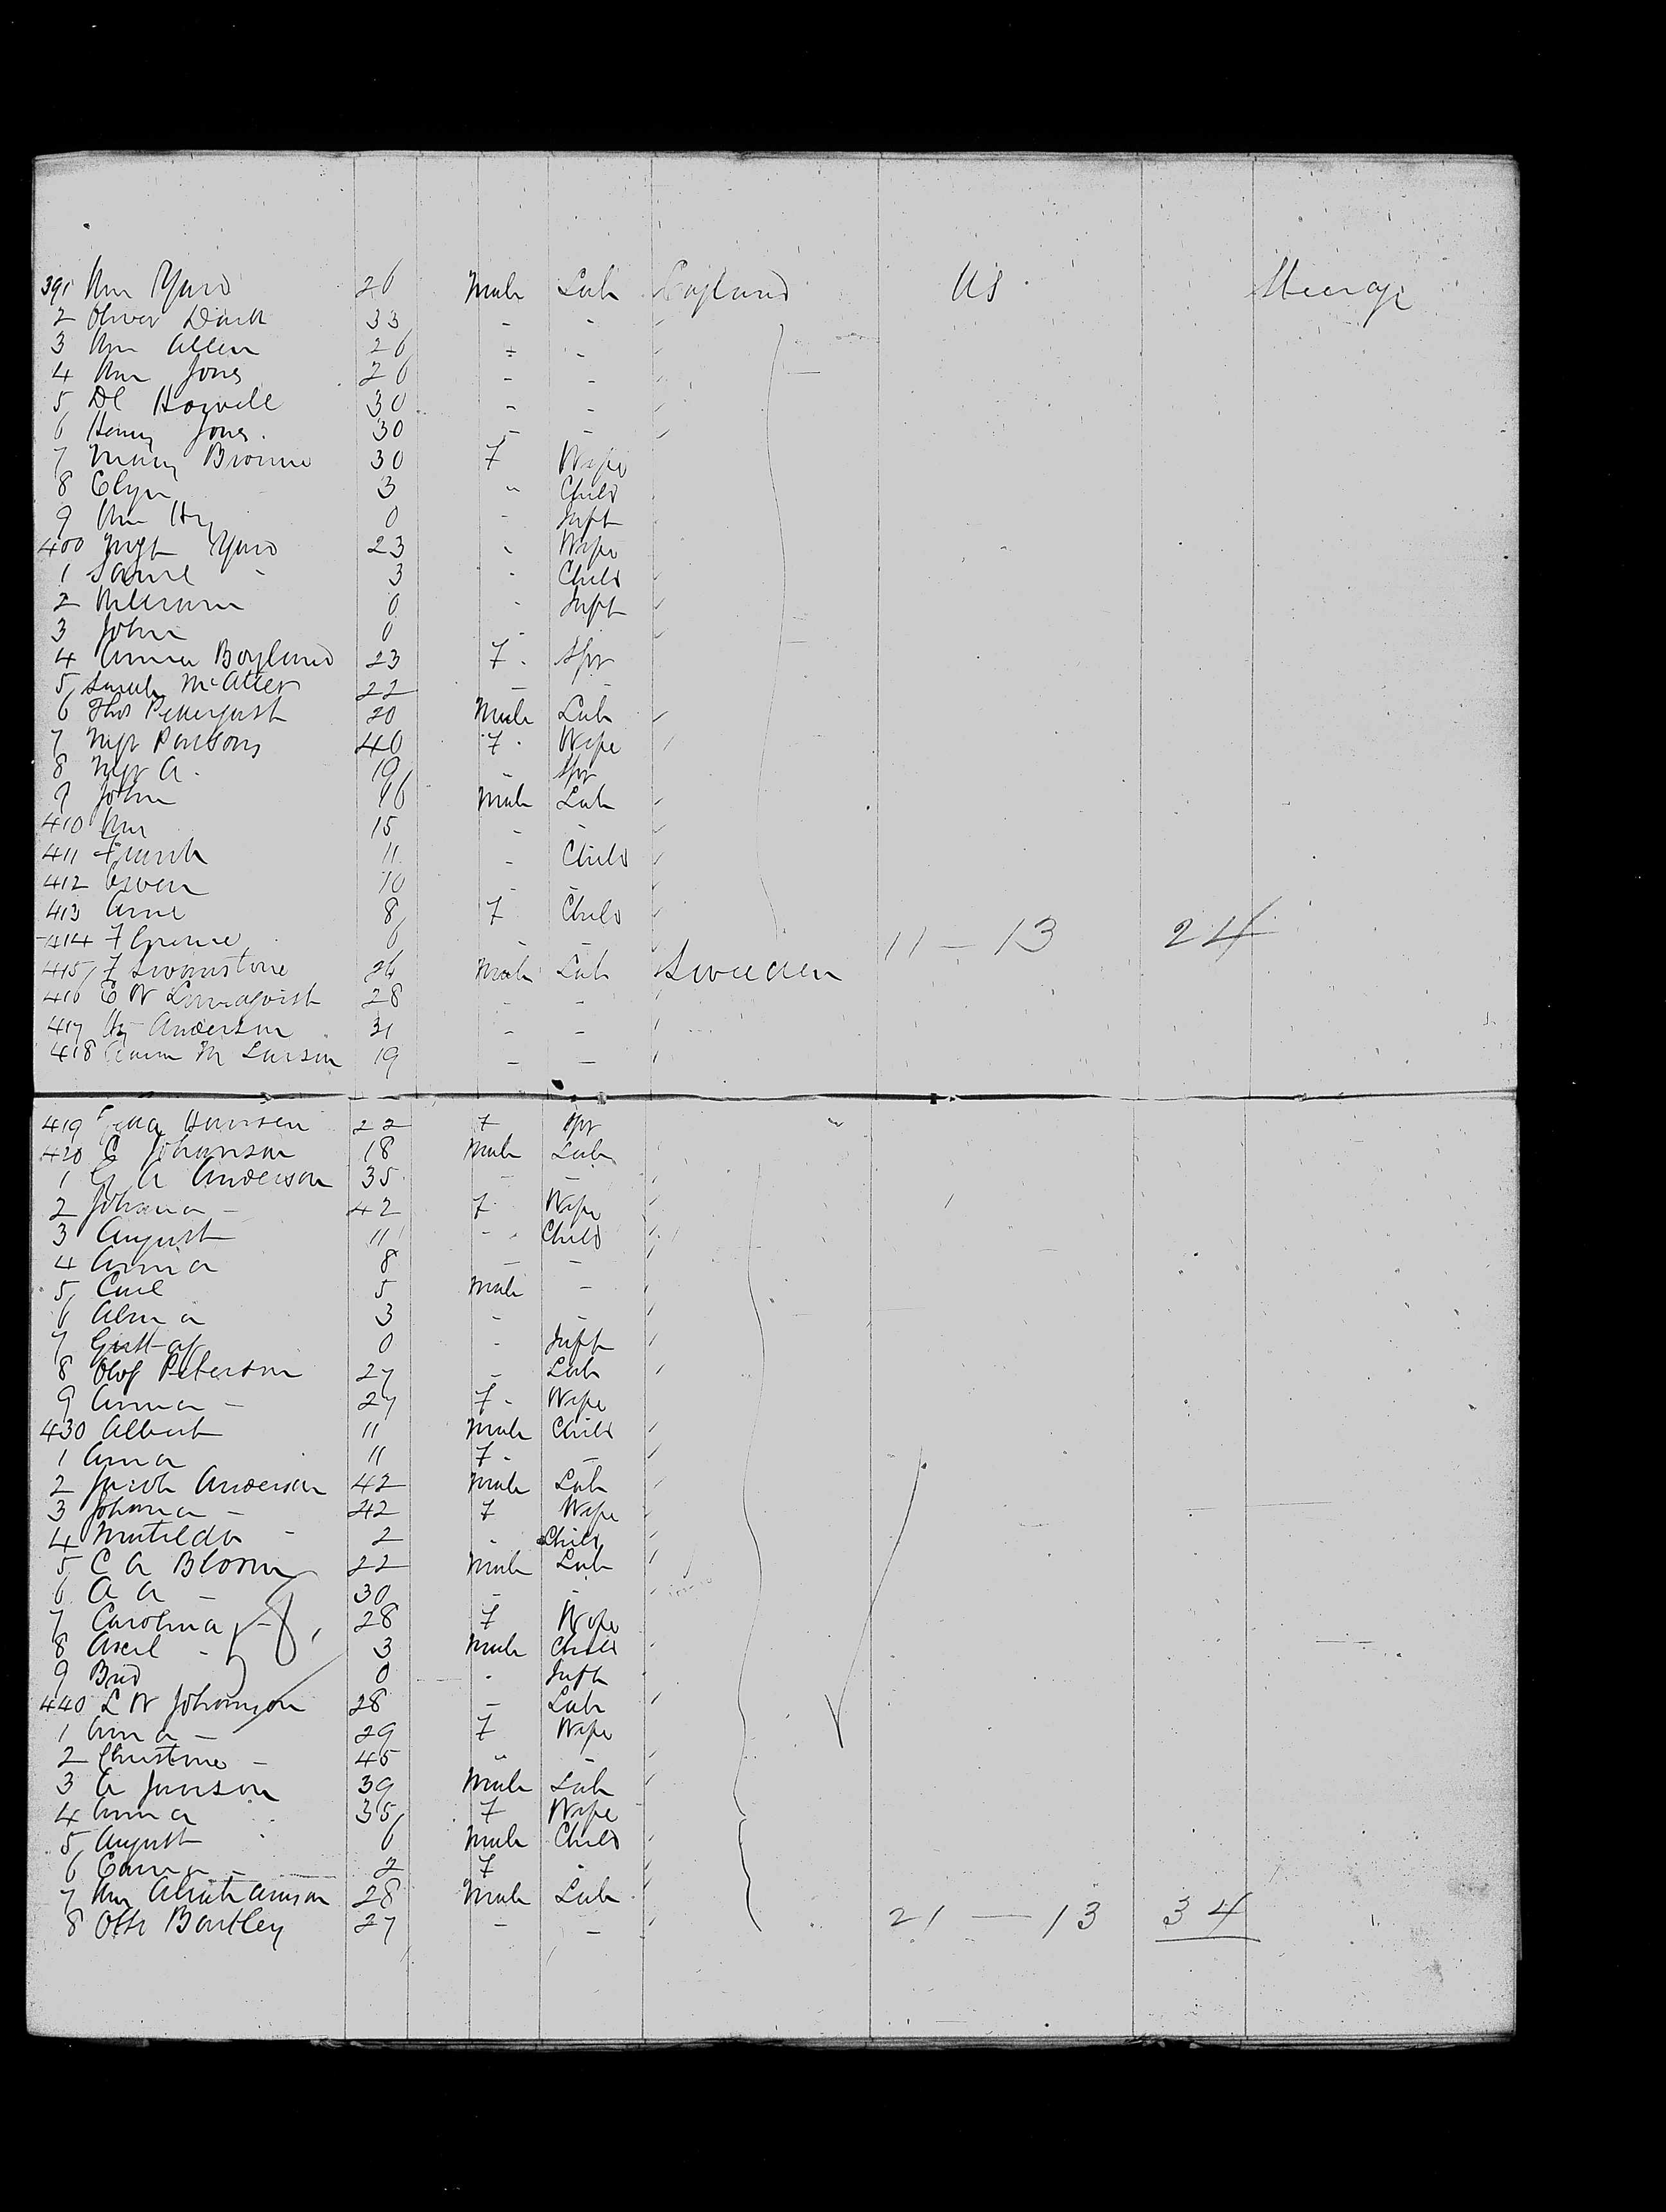 391 Wm Yard 26 Male Lab England US Steerage
2 Oliver Dark 33 - -
3 Wm Allen 26 - -
4 Wm Jones 26 - -
5 Dl 30 - -
6 Henry Jones. 30 - -
7 Mary Browne 30 F Wife
8 3 " Child
9 Wm Hy 0 - Inft
400 Mgt Yard 23 - Wife
1 - 3 - Child
2 William 0 - Inft
3 John 0 -
4 Anna Boyland 23 F. Spr
5 Sarah McAteer 22 - -
6 Thos 20 Male Lab
7 Mgt Parsons 40 F. Wife
8 Mgt A. 19 - Spr
9 John 16 Male Lab
410 Wm 15 - -
411 Frank 11 - Child
412 Owen 10 - -
413 Anne 8 F Child
414 Florence 6 - - 11 - 13 24
415 F Swanstone 26 Male Lab Sweden
416 C W 28 - -
417 Hy Anderson 31 - -
418 M Larson 19 - -
419 22 F Spr
420 C Johanson 18 Male Lab
1 G A Anderson 35 - -
2 Johana - 42 F Wife
3 August 11 - Child
4 Anna 8 - -
5 Carl 5 Male -
6 Alma 3 - -
7 Gustaf 0 - Inft
8 Olof Peterson 27 - Lab
9 Anna - 27 F - Wife
430 Albert 11 Male Child
1 Anna 11 F - -
2 Jacob Anderson 42 Male Lab
3 Johana - 42 F Wife
4 Matilda - 2 - Child
5 C A Bloom 22 Male Lab
6 A A - 30 - -
7 Carolina - 28 F Wife
8 Axel - 3 Male Child
9 0 - Inft
440 L W Johanson 28 - Lab
1 Anna - 29 F Wife
2 Christine - 45 " -
3 A Janson 39 Male Lab
4 Anna 35 F Wife
5 August 6 Male Child
6 Emma - 2 F -
7 Wm Abrahamson 28 Male Lab
8 Otto Bartley 27 - - 21 - 13 34